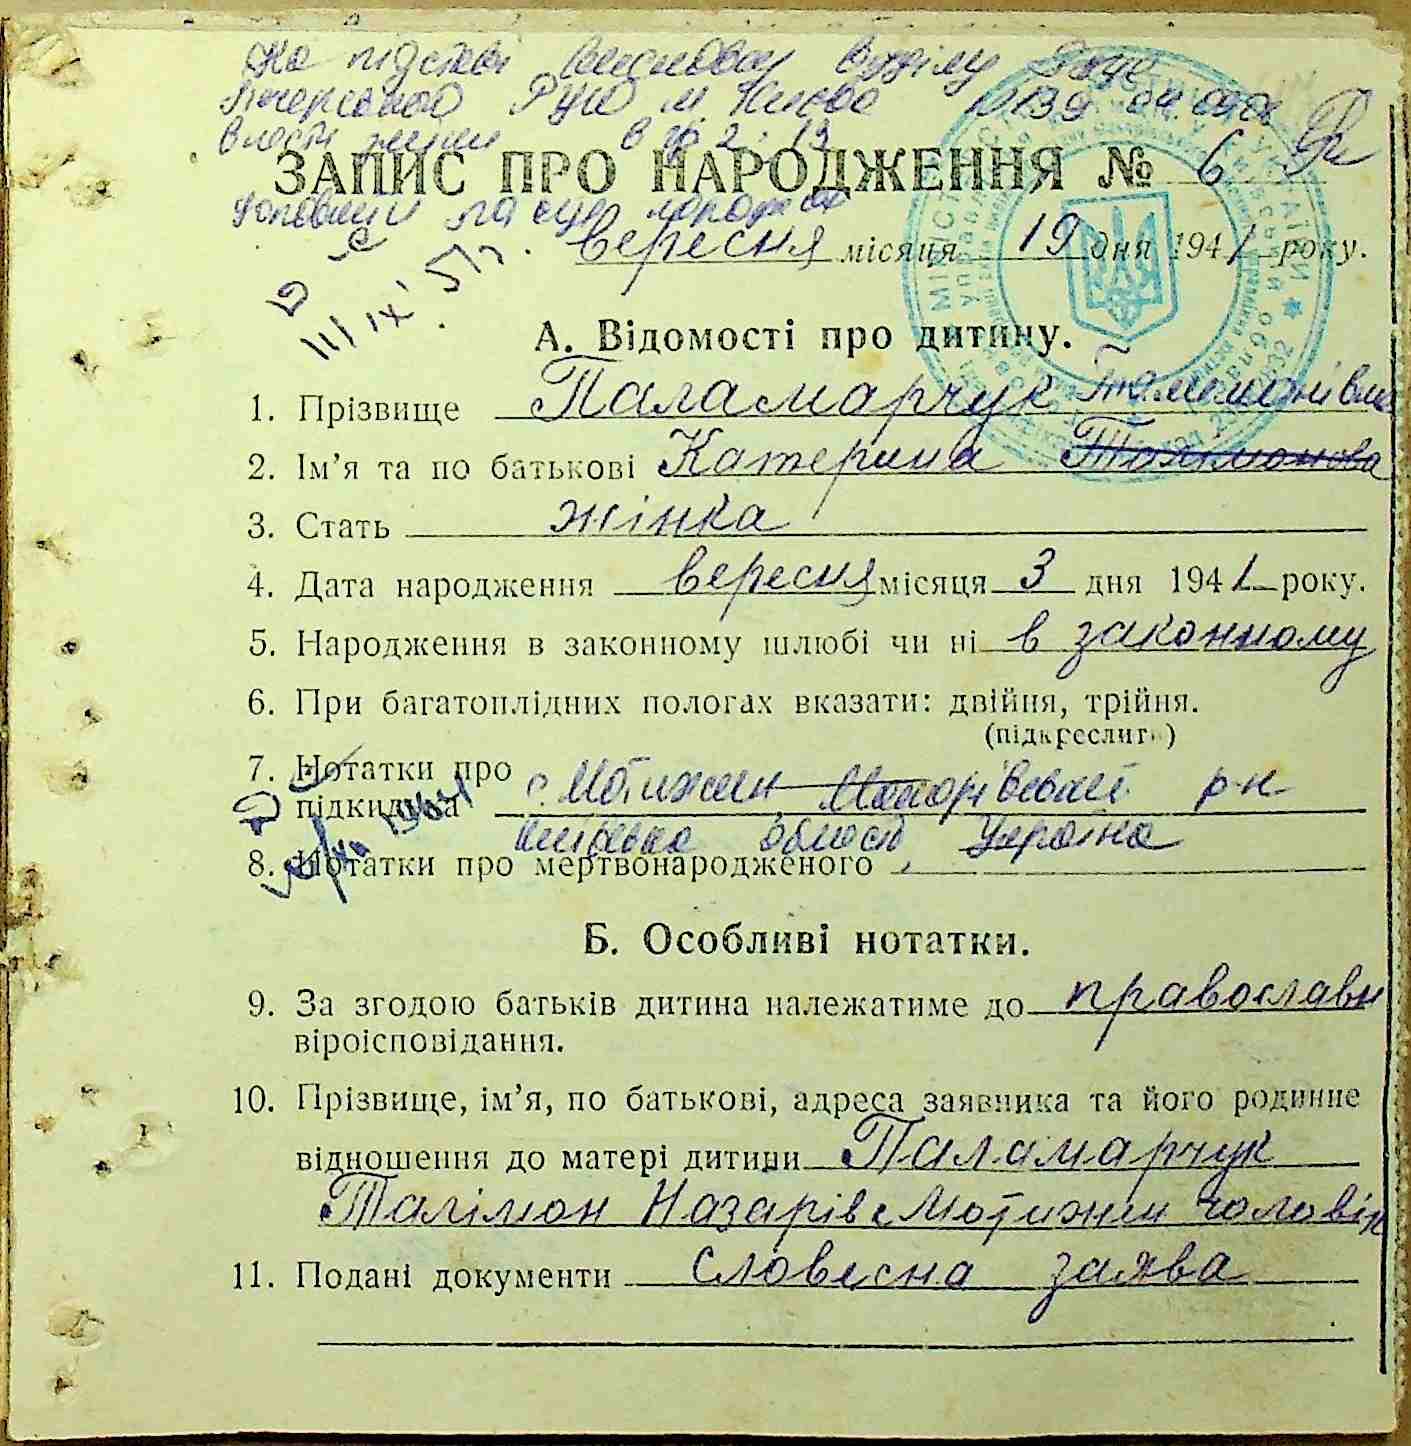 На підставі висновку відділу
Печерського РУЮ м Києва №139
в гр 2.
ЗАПИС ПРО НАРОДЖЕННЯ № 6
вересня місяця 19 дня 1941 року.
А. Відомості про дитину.
1. Прізвище Паламарчук
2. Ім'я та по батькові Катерина
3. Стать жінка
4. Дата народження вересня місяця 3 дня 1941 року.
5. Народження в законному шлюбі чи ні в законному
6. При багатоплідних пологах вказати: двійня, трійня.
(підкреслити)
7. Нотатки про
підкидька с. Мотижин Макарівський р-н
Київська область Україна
8. Нотатки про мертвонародженого
Б. Особливі нотатки.
9. За згодою батьків дитина належатиме до православн
віроісповідання.
10. Прізвище, ім'я, по батькові, адреса заявника та його родинне
відношення до матері дитини Паламарчук
Талімон Назарів с Мотижин чоловік
11. Подані документи Словесна заява